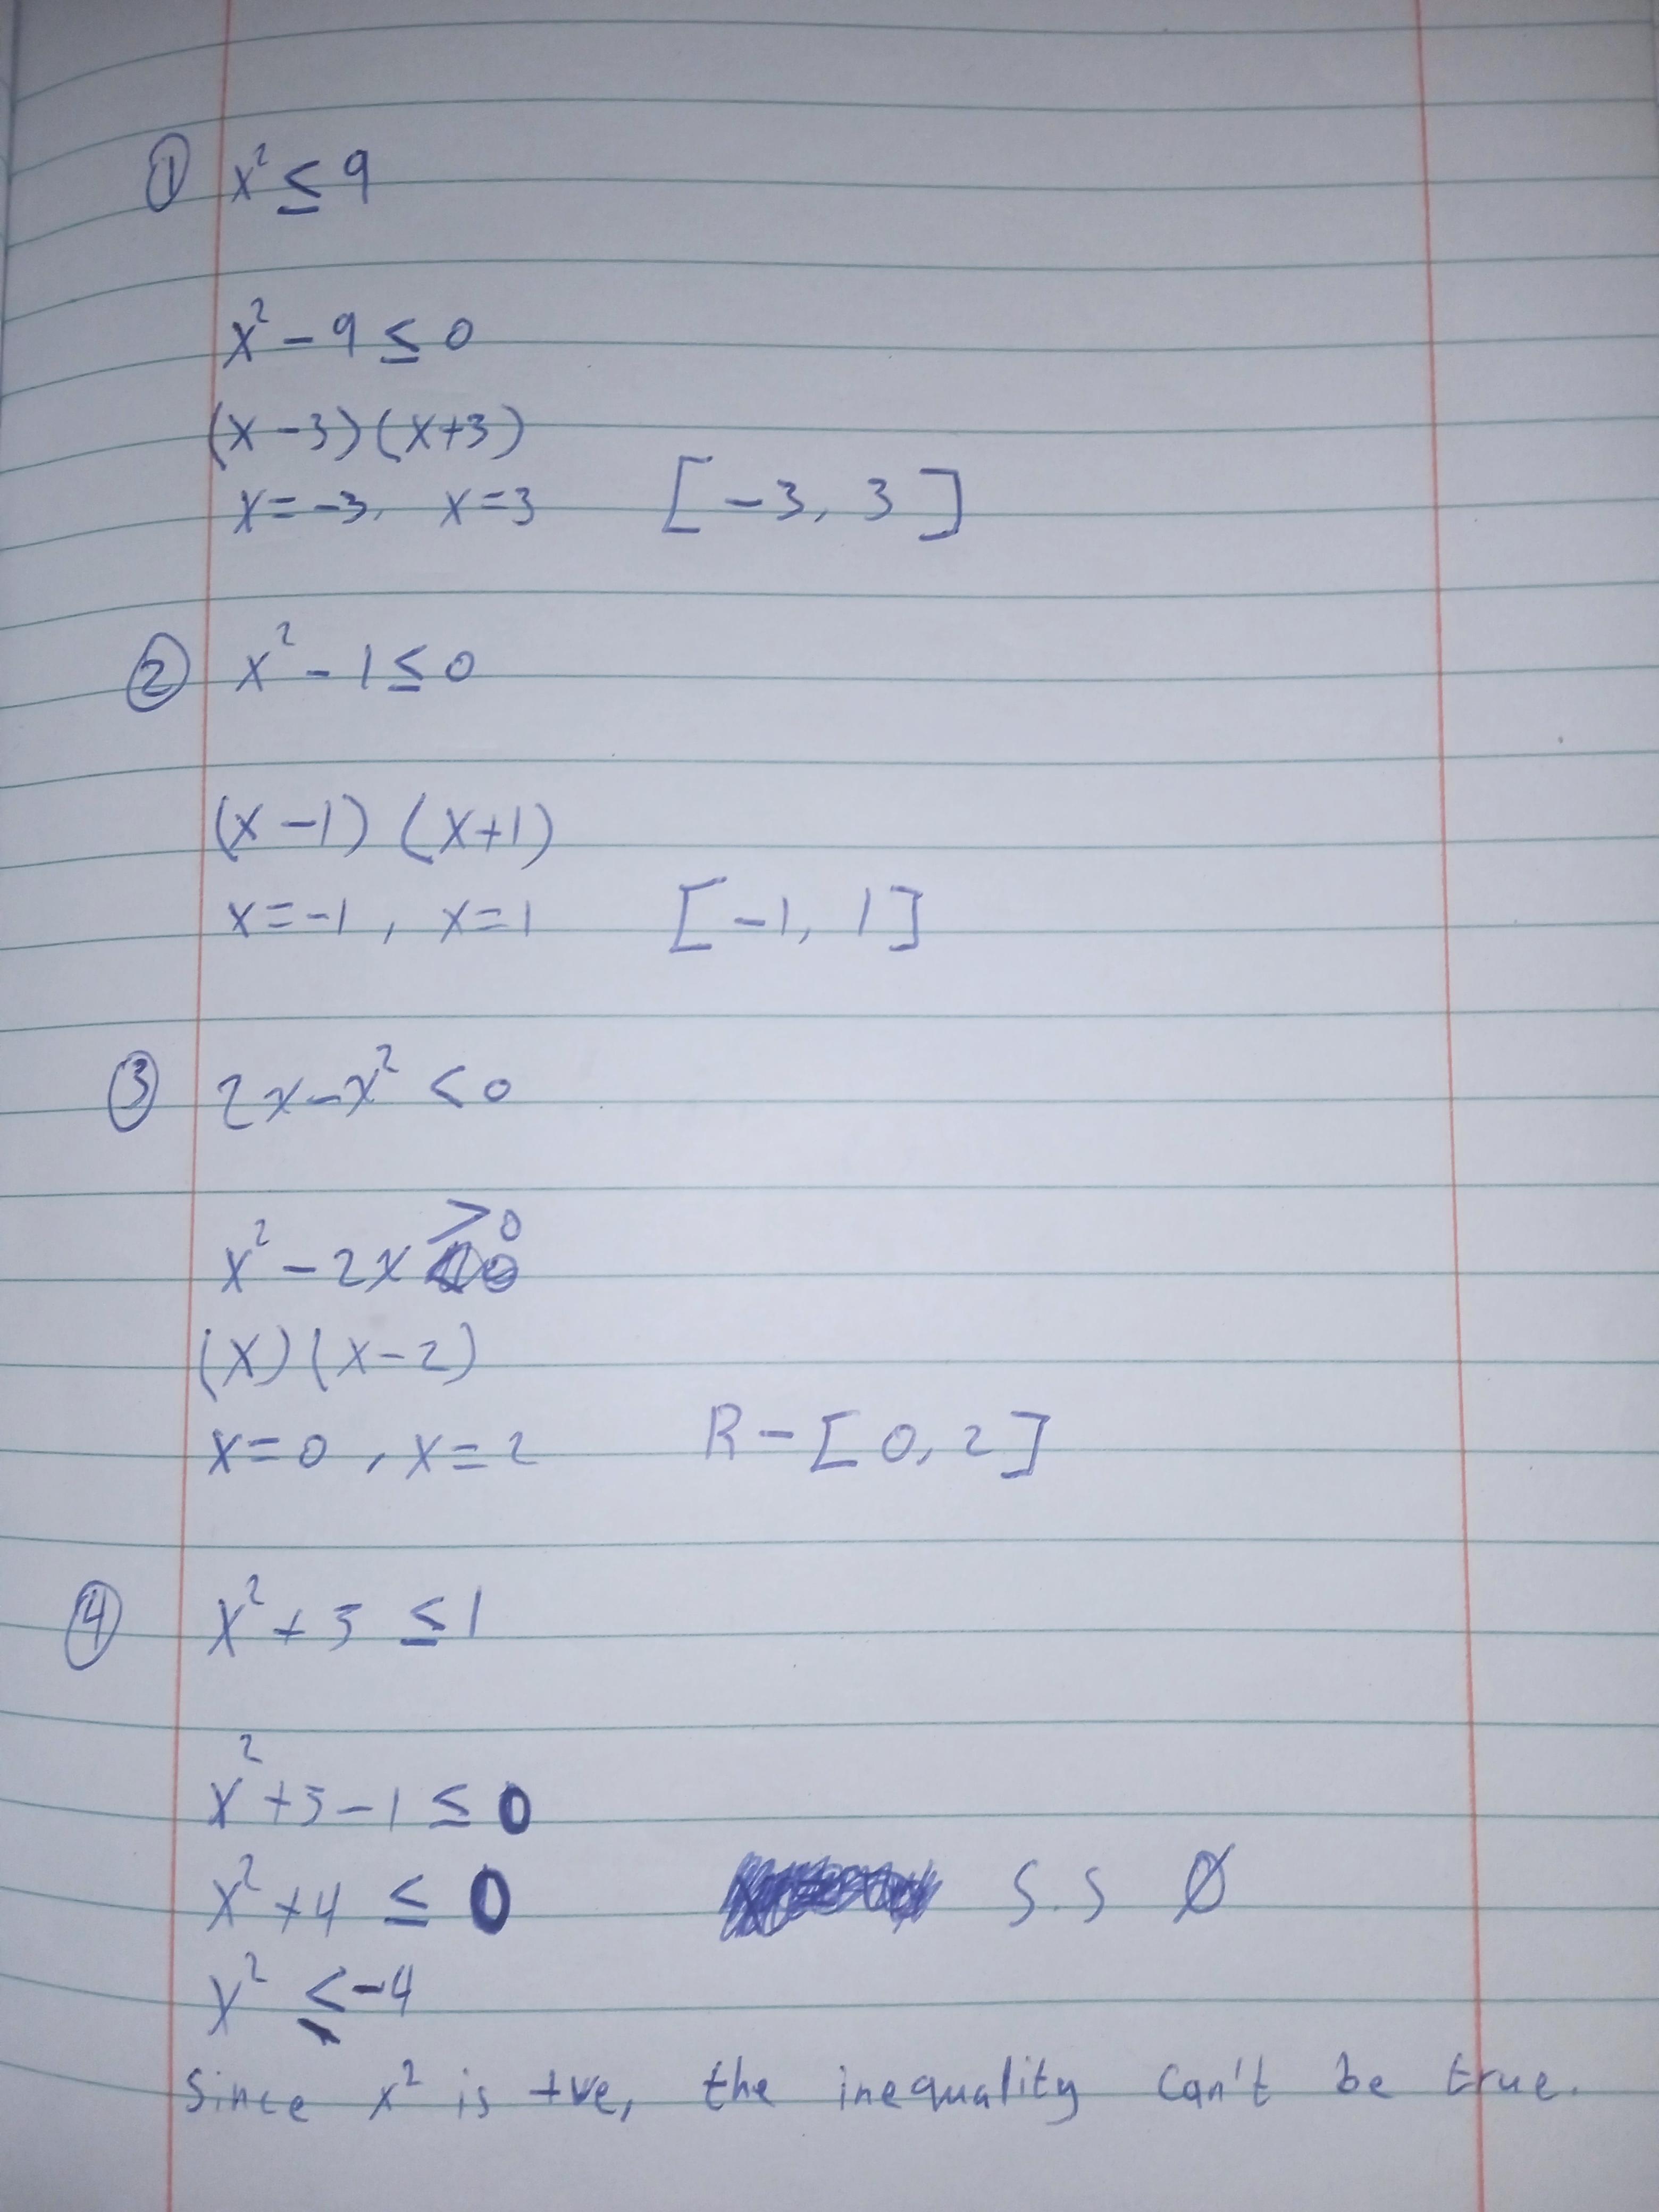 ① x² ≤ 9
x² - 9 ≤ 0
(x - 3) (x+3)
x = -3, x = 3 [-3, 3]
② x² - 1 ≤ 0
(x - 1) (x+1)
x = -1, x = 1 [-1, 1]
③ 2x - x² < 0
x² - 2x > 0
(x) (x - 2)
x = 0, x = 2 R - [0, 2]
④ x² + 5 ≤ 1
x² + 5 - 1 ≤ 0
x² + 4 ≤ 0 S.S Ø
x² ≤ -4
Since x² is +ve, the inequality can't be true.